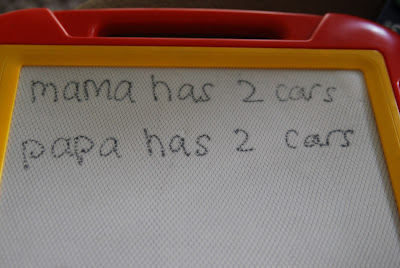 mama has 2 cars
papa has 2 cars